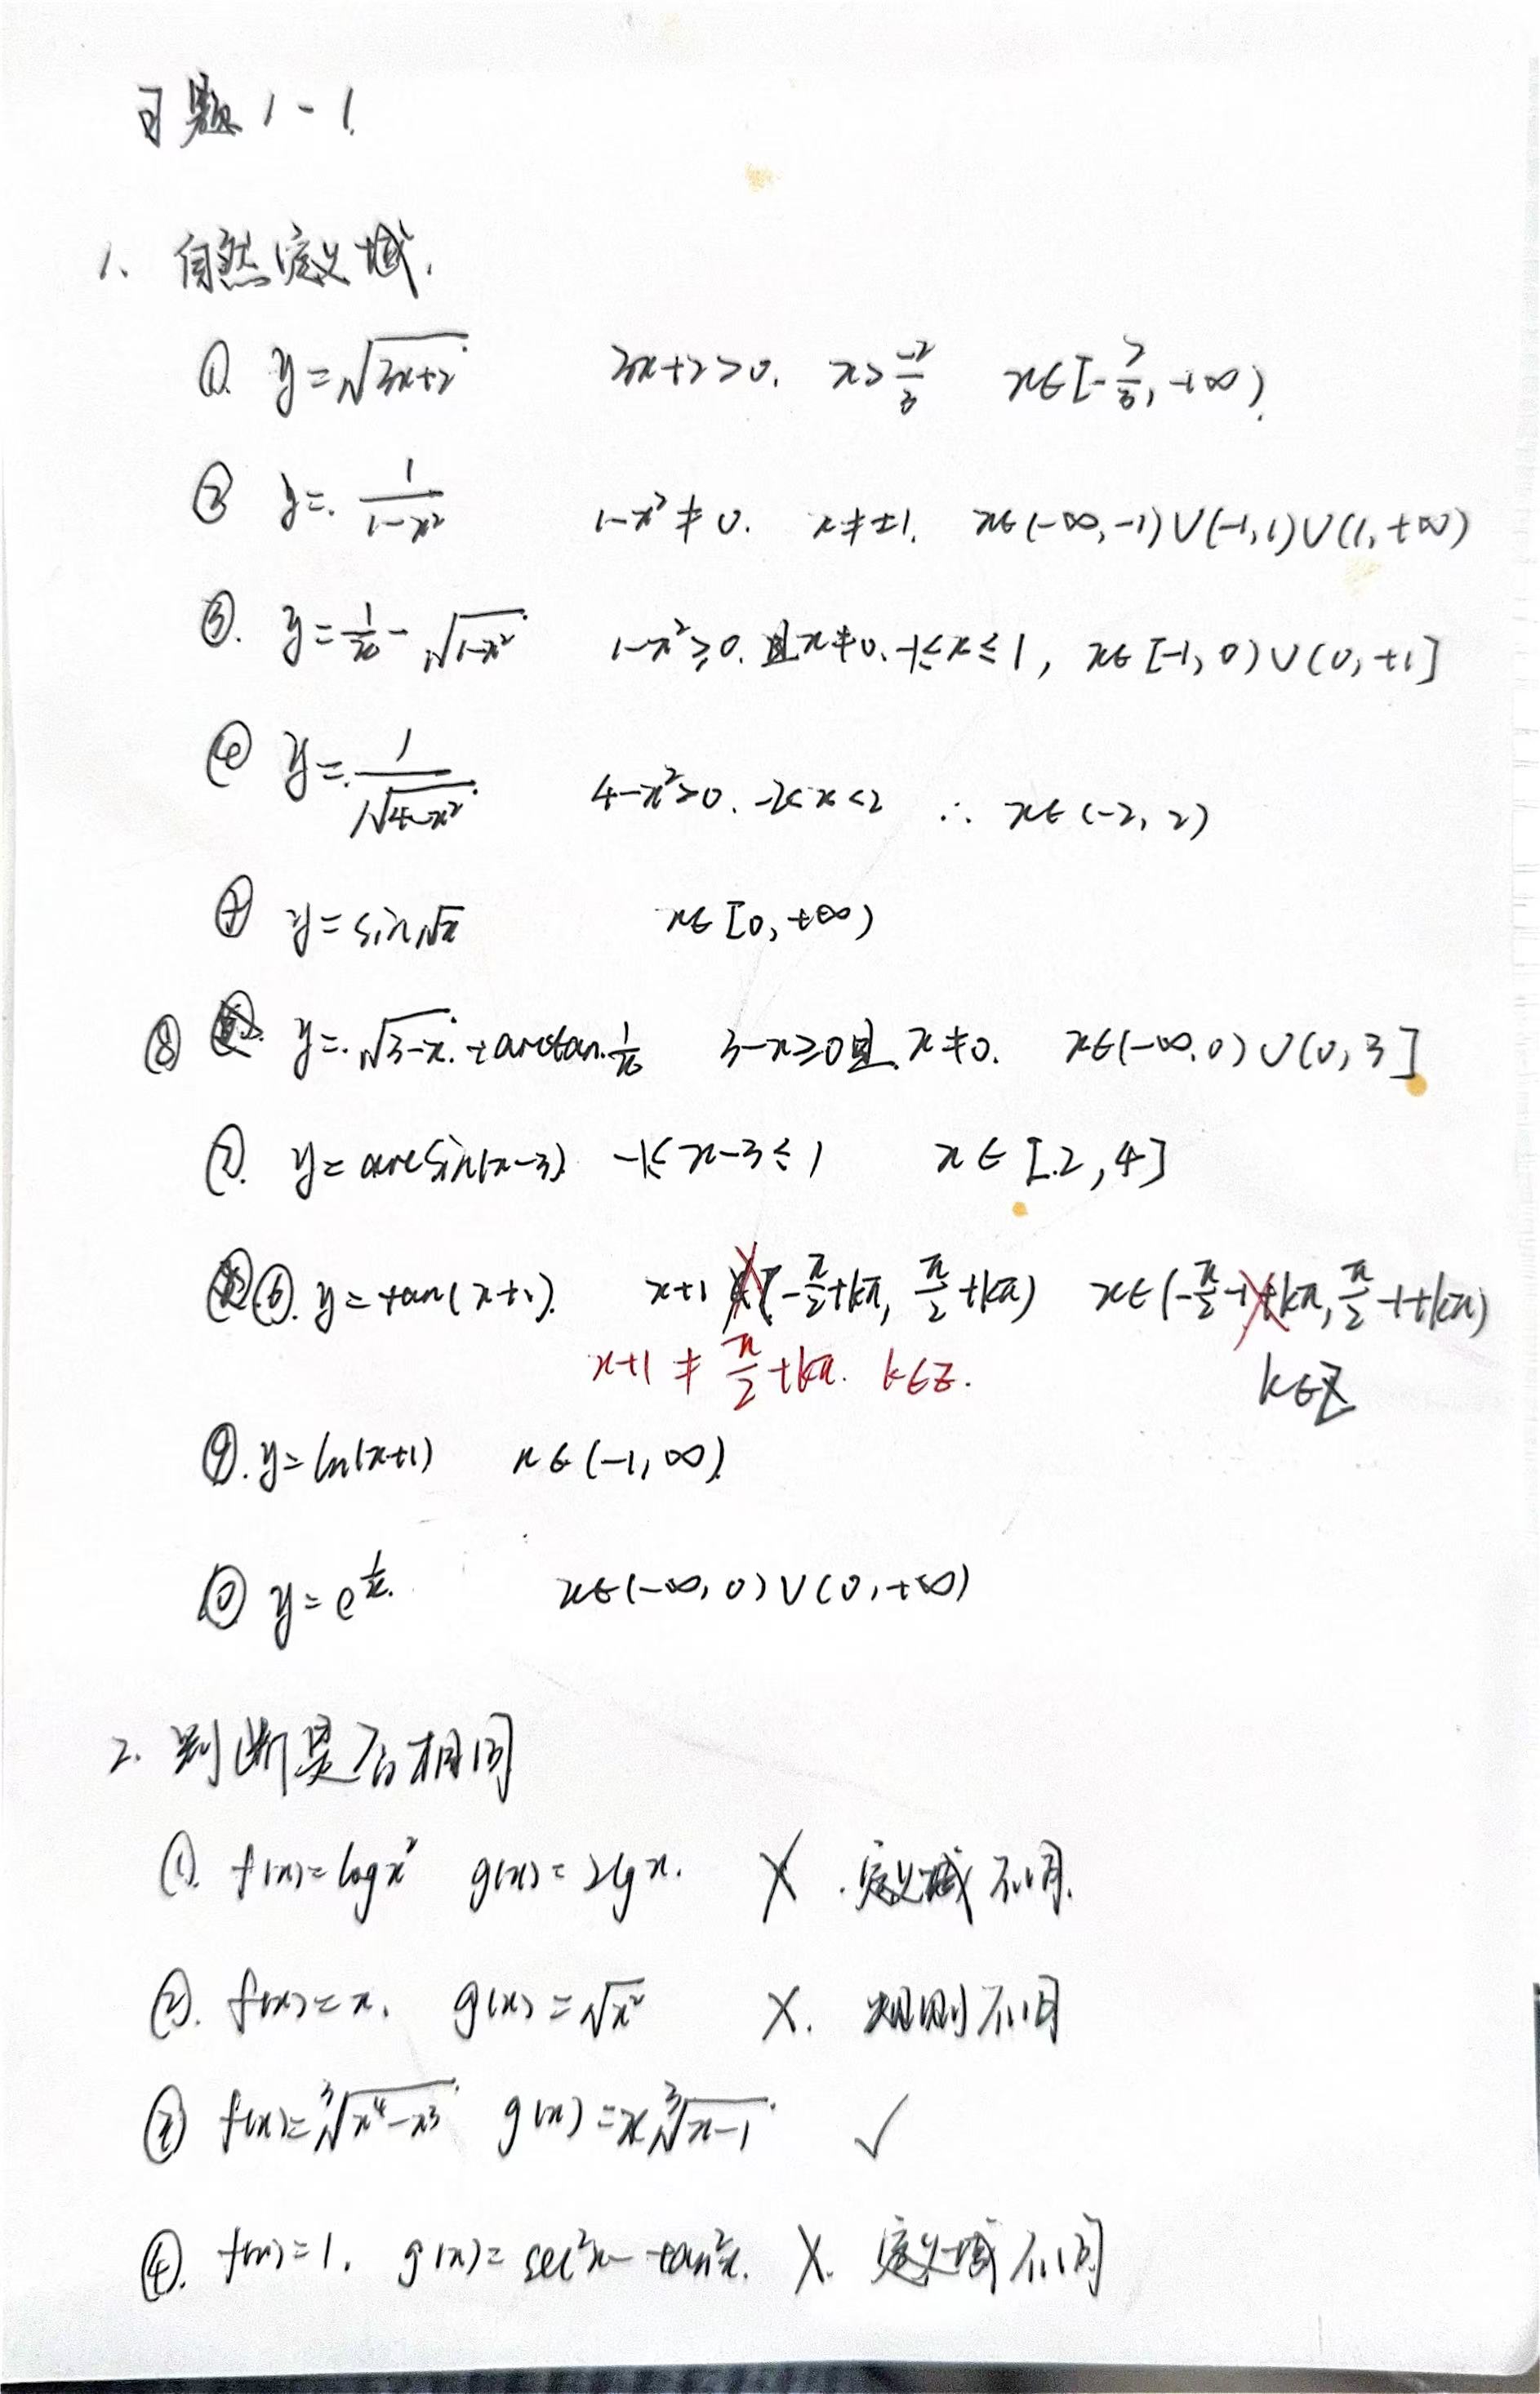 习题1-1.
1. 自然定义域.
① y=√(3x+2) 3x+2>0. x>-2/3 x∈[-2/3, +∞).
② y=1/(1-x²) 1-x²≠0. x≠±1. x∈(-∞,-1)∪(-1,1)∪(1,+∞)
③. y=1/x-√(1-x²) 1-x²≥0.且x≠0.-1≤x≤1, x∈[-1,0)∪(0,+1]
④ y=1/√(4-x²) 4-x²>0. -2<x<2 ∴ x∈(-2,2)
y=sin√x x∈[0,+∞)
⑧ y=√(3-x)+arctan 1/x 3-x≥0且x≠0. x∈(-∞,0)∪(0,3]
⑦. y=arcsin(x-3) -1≤x-3≤1 x∈[2,4]
⑥. y=tan(x+1). x+1 (-π/2+kπ, π/2+kπ) x∈(-π/2-1+kπ, π/2-1+kπ)
x+1≠π/2+kπ. k∈Z. k∈Z
⑨. y=ln(x+1) x∈(-1,∞).
⑩ y=e^(1/x). x∈(-∞,0)∪(0,+∞)
2. 判断是否相同
①. f(x)=logx² g(x)=2lgx. ✗. 定义域不同.
②. f(x)=x. g(x)=√x² ✗. 规则不同
③ f(x)=³√(x⁴-x³) g(x)=x³√(x-1) ✓
④. f(x)=1. g(x)=sec²x-tan²x. ✗. 定义域不同